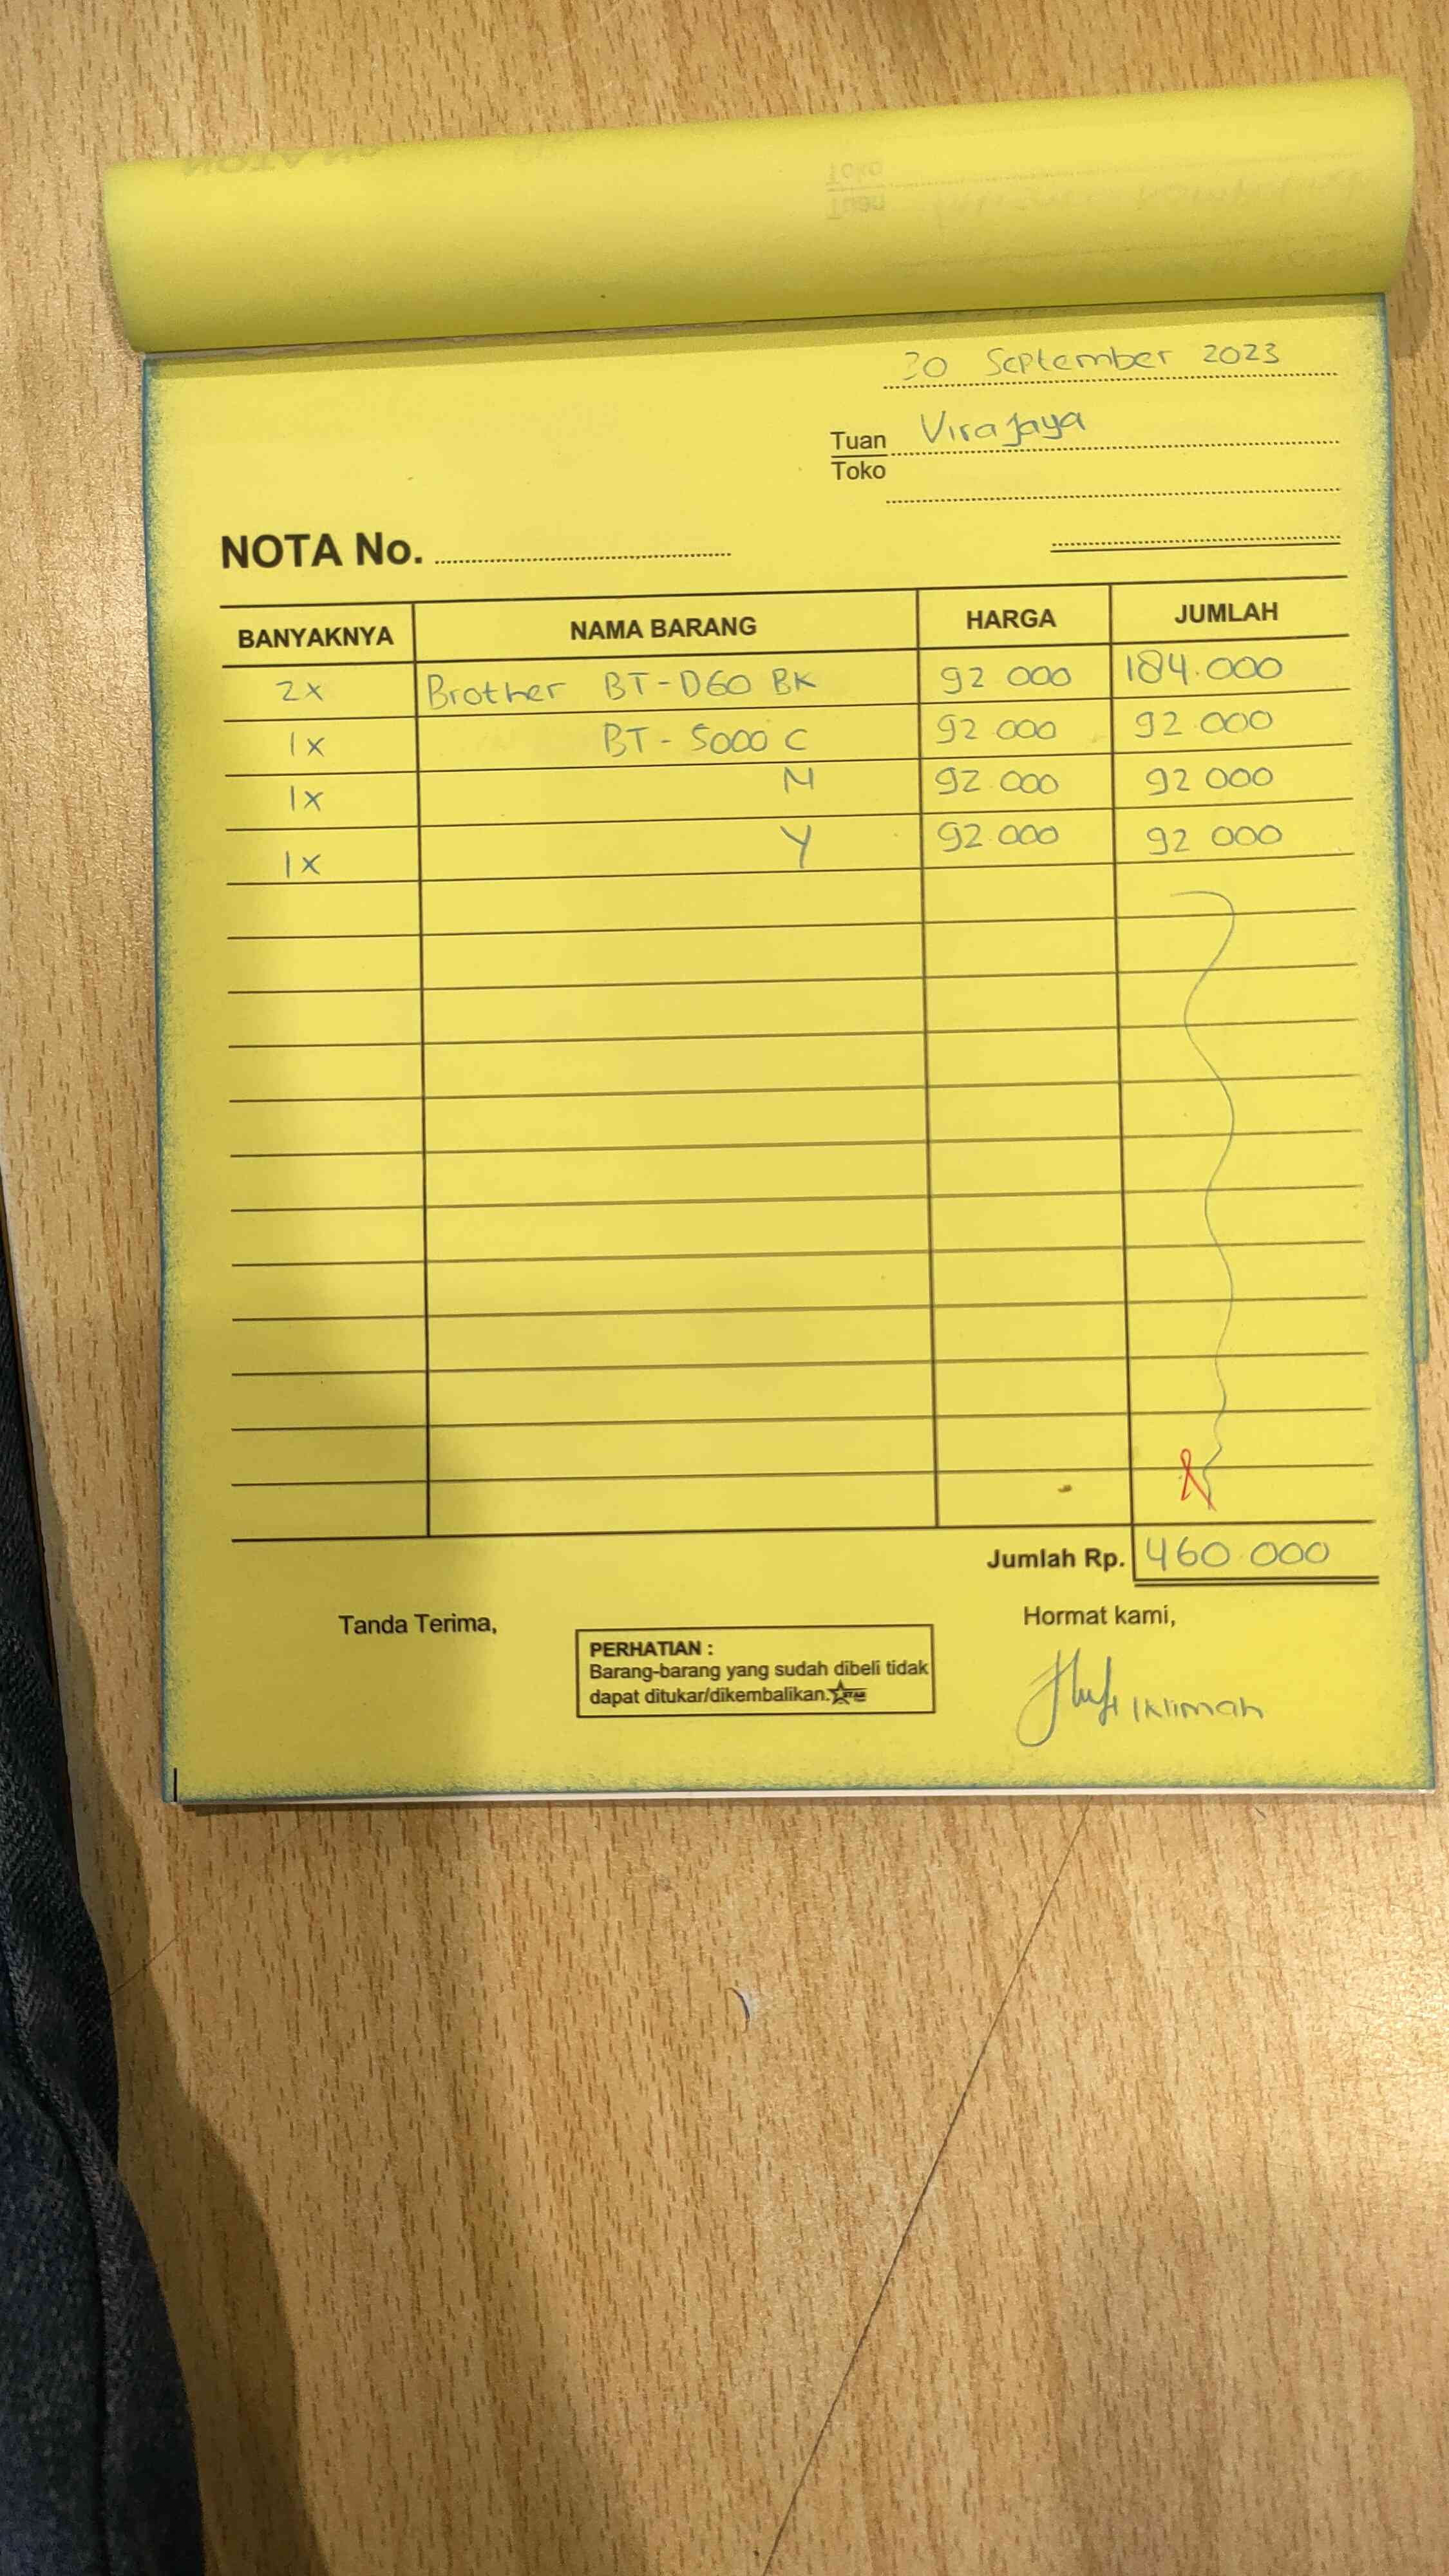 30 September 2023
Tuan Virajaya
Toko
NOTA No.
BANYAKNYA NAMA BARANG HARGA JUMLAH
2x Brother BT-D60 BK 92 000 184.000
1x BT-5000 C 92 000 92 000
1x M 92.000 92 000
1x Y 92.000 92 000
Jumlah Rp. 460.000
Tanda Terima,
PERHATIAN :
Barang-barang yang sudah dibeli tidak
dapat ditukar/dikembalikan.
Hormat kami,
Iklimah